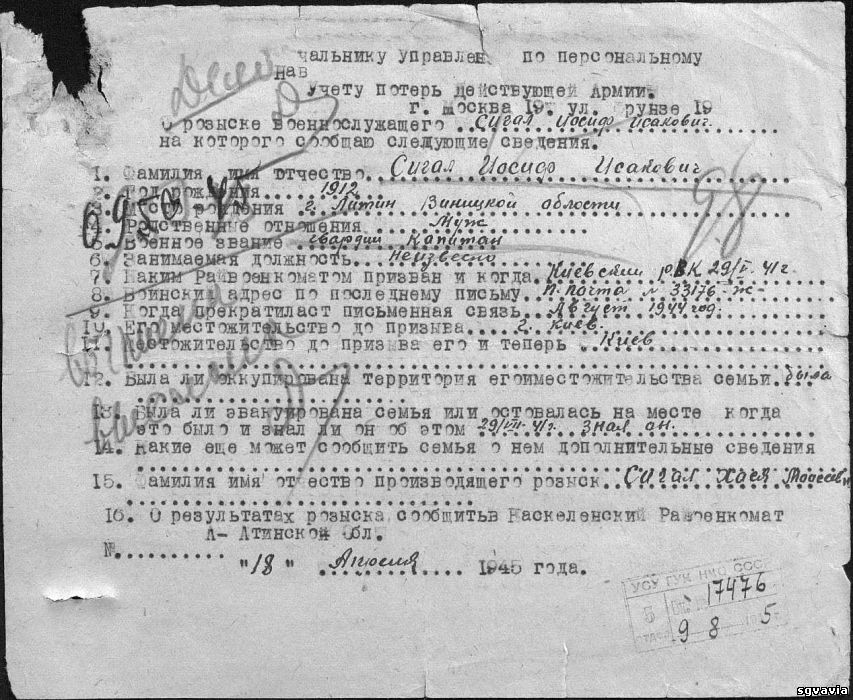 чальнику Управлен по персональному
нав
Учету потерь Действующей Армии.
г. Москва 19 ул. Фрунзе 19
О розыске военнослужащего Сигал Иосиф Исакович
на которого сообщаю следующие сведения.
1. Фамилия имя отчество Сигал Иосиф Исакович
2. Год рождения 1912
3. рождения г. Литин Виницкой области
4. Родственные отношения Муж
5. Военное звание гвардии Капитан
6. Занимаемая должность Неизвесно
7. Каким Райвоенкоматом призван и когда Киевским РВК 29/ 41г.
8. Воинский адрес по последнему письму п. почта № 33176-ж-
9. Когда прекратиласт письменная связь Август 1944 год.
10. Его местожительство до призыва г. Киев.
11. Местожительство до призыва его и теперь Киев
12. Была ли оккупирована территория егоиместожительства семьи была
13. Была ли эвакуирована семья или оставалась на месте когда
это было и знал ли он об этом 29/VII-41г. Знал он.
14. Какие еще может сообщить семья о нем дополнительные сведения
15. Фамилия имя отчество производящего розыск Сигал Хаея
16. О результатах розыска сообщитьв Каскеленский Райвоенкомат
А- Атинской Обл.
№
"18" Апреля 1945 года.
УСУ ГУК НКО СССР
5 17476
9 8 5
69504-45
98
sgvavia